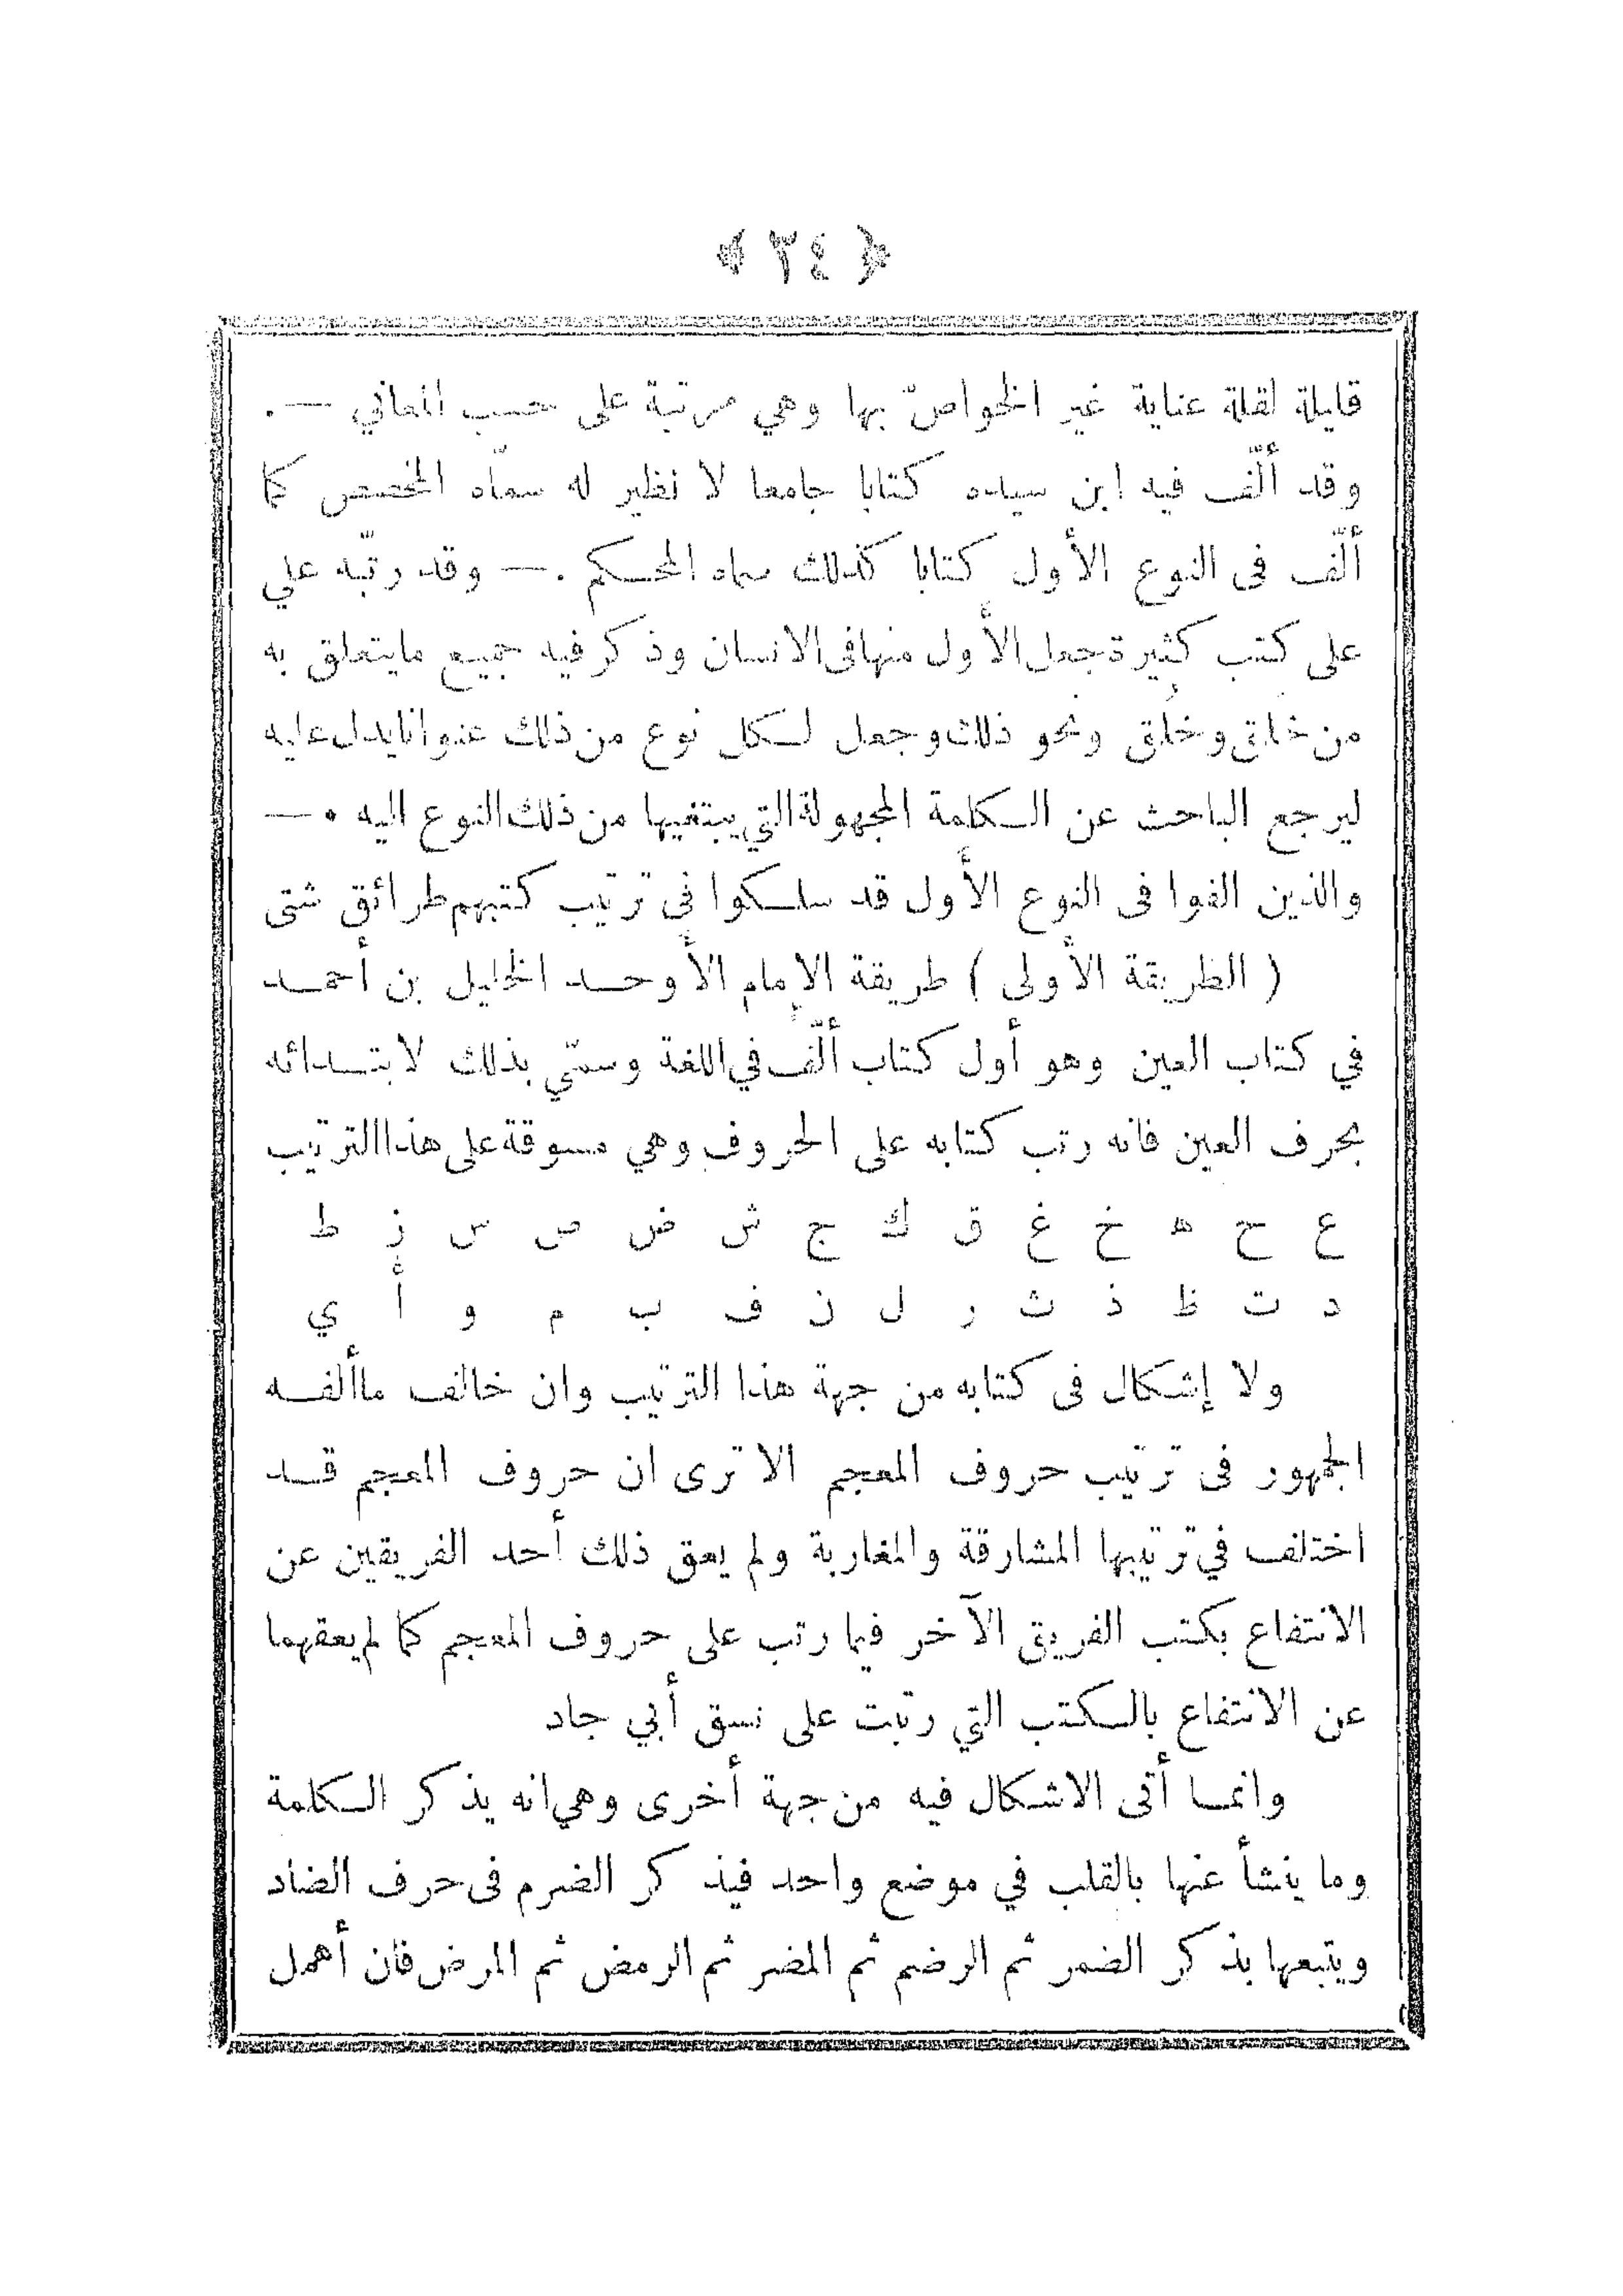 ﴿ ٣٤ ﴾
قليلة لقلة عناية غير الخواصّ بها وهي مرتبة على حسب المعاني — .
وقد ألّف فيه ابن سيده كتابا جامعا لا نظير له سمّاه المخصص كما
ألّف فى النوع الأول كتابا كذلك سماه المحكم . — وقد رتّبه علي
على كتب كثيرة جعل الأول منها فى الانسان وذكر فيه جميع مايتعلق به
من خلق وخُلق ونحو ذلك وجعل لكل نوع من ذلك عنوانا يدل عليه
ليرجع الباحث عن الكلمة المجهولة التي يبتغيها من ذلك النوع اليه . —
والذين الفوا فى النوع الأول قد سلكوا في ترتيب كتبهم طرائق شتى
( الطريقة الأولى ) طريقة الإمام الأوحد الخليل بن أحمد
في كتاب العين وهو أول كتاب ألّف في اللغة وسمّي بذلك لابتدائه
بحرف العين فانه رتب كتابه على الحروف وهي مسوقة على هذا الترتيب
ع ح ه خ غ ق ك ج ش ض ص س ز ط
د ت ظ ذ ث ر ل ن ف ب م و أ ي
ولا إشكال فى كتابه من جهة هذا الترتيب وان خالف ماألفه
الجمهور فى ترتيب حروف المعجم الا ترى ان حروف المعجم قد
اختلف في ترتيبها المشارقة والمغاربة ولم يعق ذلك أحد الفريقين عن
الانتفاع بكتب الفريق الآخر فيما رتب على حروف المعجم كما لم يعقهما
عن الانتفاع بالكتب التي رتبت على نسق أبي جاد
وانما أتى الاشكال فيه من جهة أخرى وهي انه يذكر الكلمة
وما ينشأ عنها بالقلب في موضع واحد فيذكر الضرم فى حرف الضاد
ويتبعها بذكر الضمر ثم الرضم ثم المضر ثم الرمض ثم المرض فان أهمل